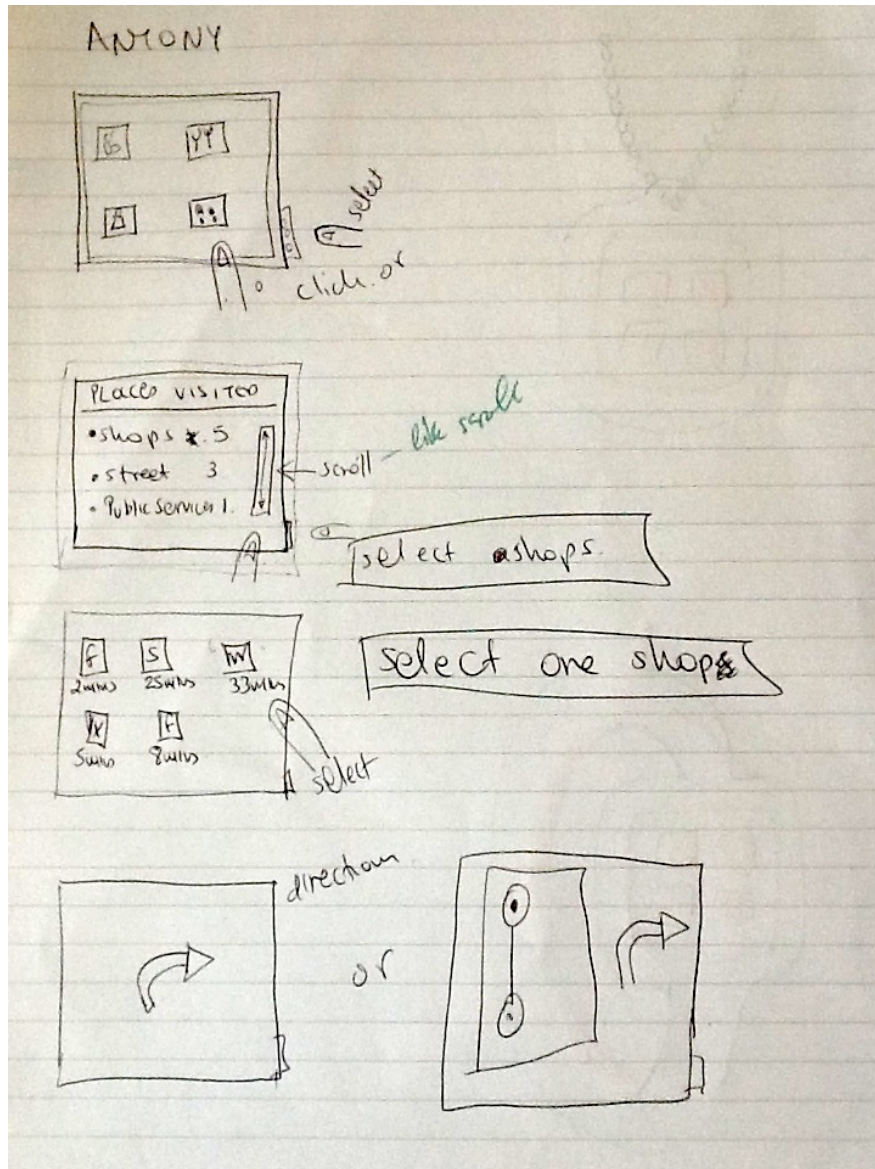 ANTONY
YY
select
click or
PLACES VISITED
• shops 5
• street 3
• Public Services 1.
scroll
like scroll
select shops.
f S W
2mins 25mins 33mins
X F
5mins 8mins
select one shop
select
direction
or